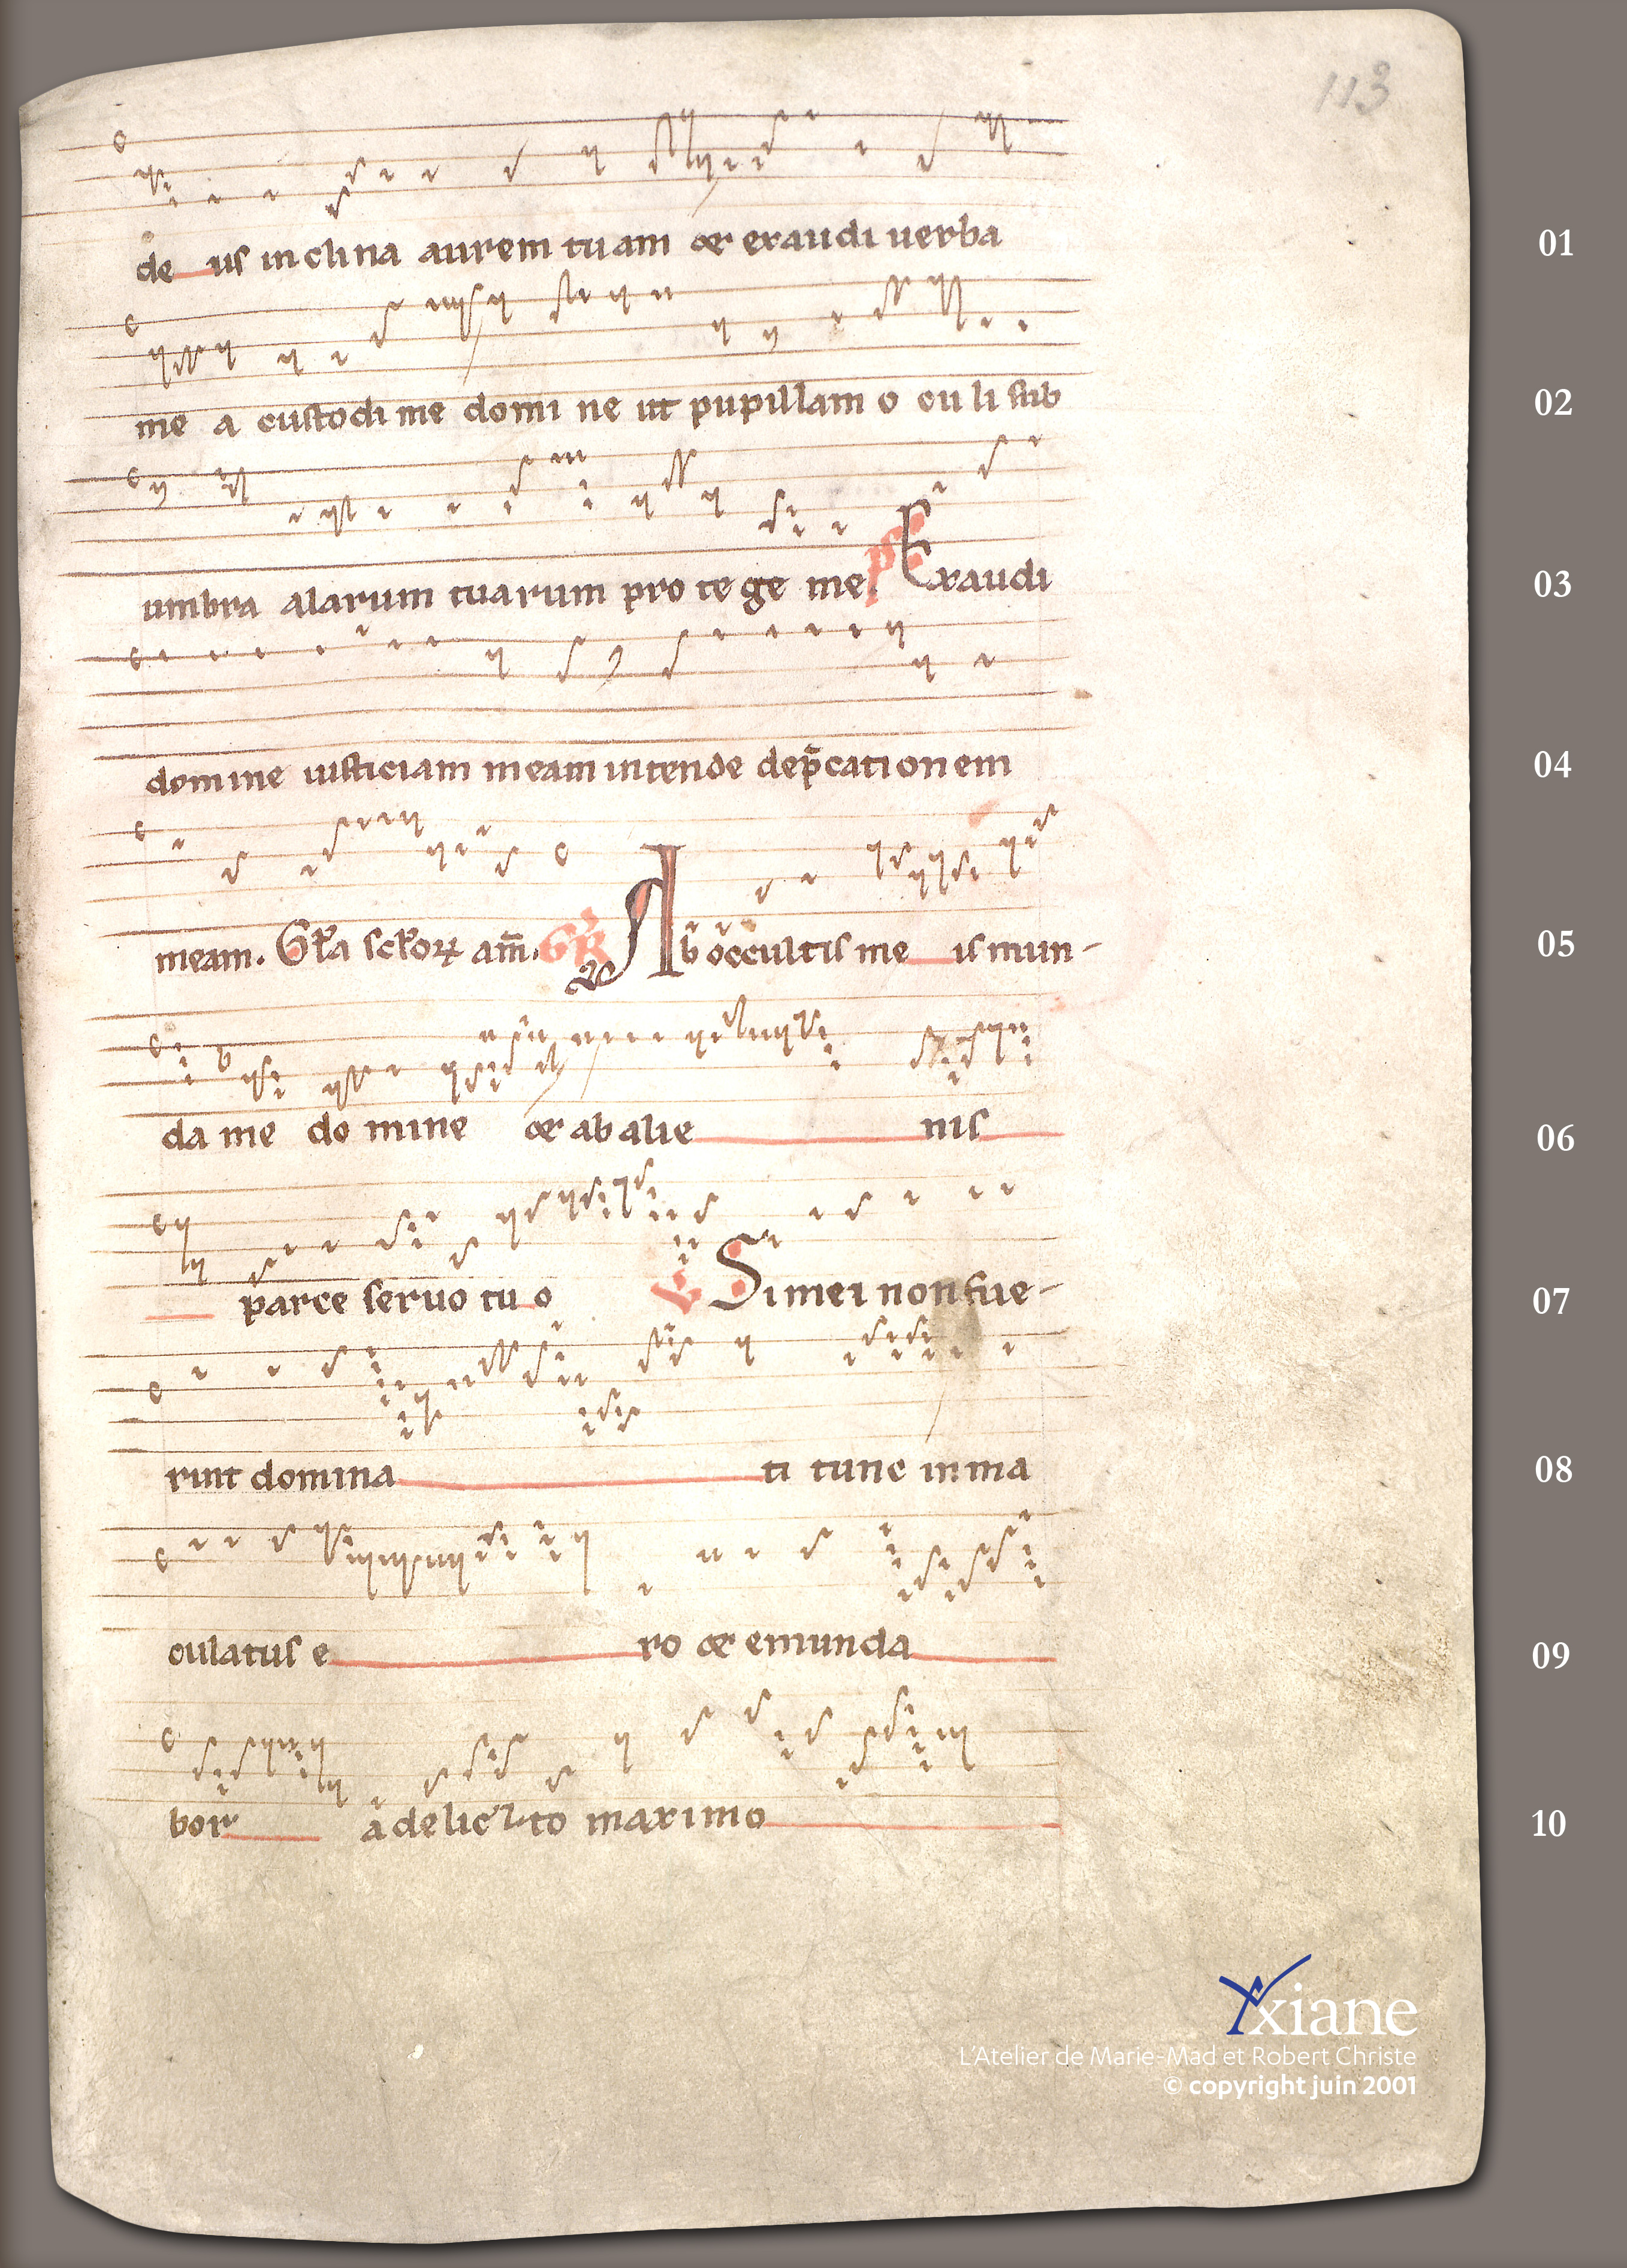 113
de us inclina aurem tuam et exaudi uerba
01
me a custodi me domi ne ut pupillam o culi sub
02
umbra alarum tuarum pro te ge me. ps Exaudi
03
domine iusticiam meam intende dep̄cationem
04
meam. Gl̄a sc̄lorꝝ am̄. GR Ab occultis me is mun-
05
da me do mine et ab alie nis
06
parce seruo tu o V Si mei non fue-
07
rint domina ti tunc inma
08
culatus e ro et emunda
09
bor a delic to maximo
10
Yxiane
L'Atelier de Marie-Mad et Robert Christe
© copyright juin 2001